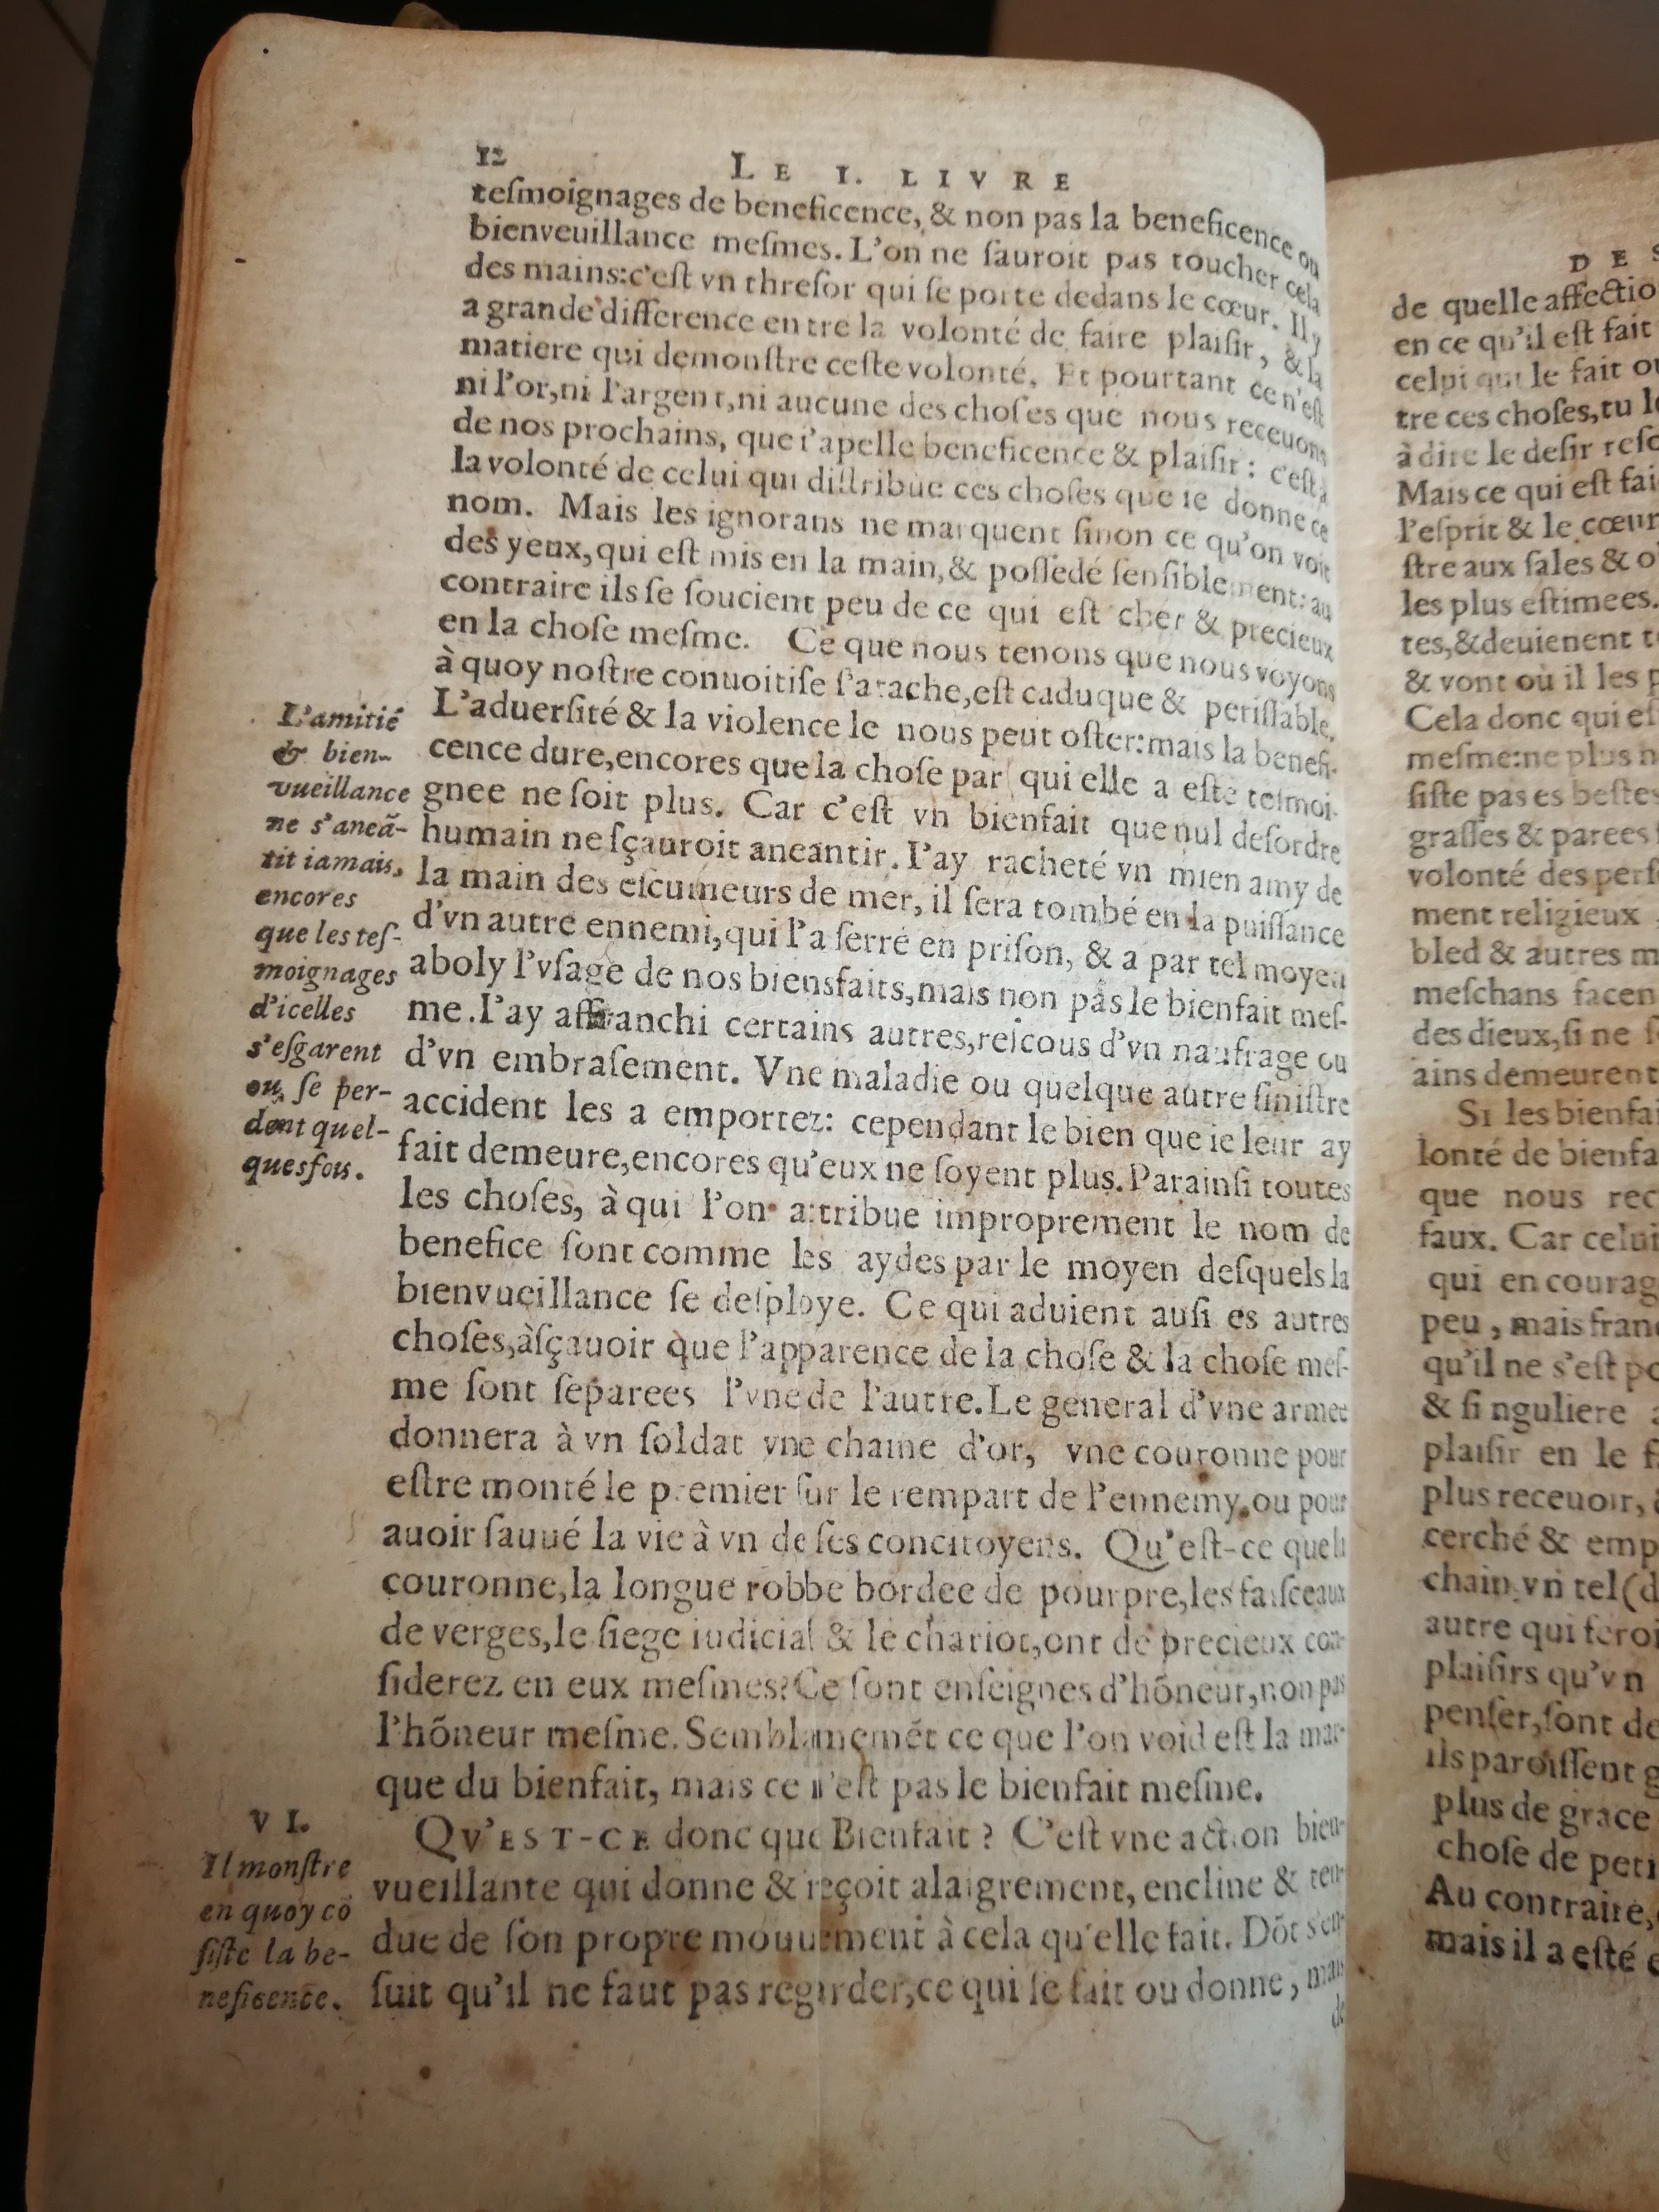 12
LE I. LIVRE
tesmoignages de beneficence, & non pas la beneficence ou
bienveuillance mesmes. L'on ne sauroit pas toucher cela
des mains:c'est vn thresor qui se porte dedans le cœur. Il y
a grande difference entre la volonté de faire plaisir, & la
matiere qui demonstre ceste volonté. Et pourtant ce n'est
ni l'or,ni l'argent,ni aucune des choses que nous receuons
de nos prochains, que i'apelle beneficence & plaisir : c'est à
la volonté de celui qui distribue ces choses que ie donne ce
nom. Mais les ignorans ne marquent sinon ce qu'on voit
des yeux,qui est mis en la main,& possedé sensiblement: au
contraire ils se soucient peu de ce qui est cher & precieux
en la chose mesme. Ce que nous tenons que nous voyons
à quoy nostre conuoitise s'atache,est caduque & perissable.
L'aduersité & la violence le nous peut oster:mais la benefi-
cence dure,encores que la chose par qui elle a este tesmoi-
gnee ne soit plus. Car c'est vn bienfait que nul desordre
humain ne sçauroit aneantir. I'ay racheté vn mien amy de
la main des escumeurs de mer, il sera tombé en la puissance
d'vn autre ennemi,qui l'a serré en prison, & a par tel moyen
aboly l'vsage de nos biensfaits,mais non pas le bienfait mes-
me. I'ay affranchi certains autres,rescous d'vn naufrage ou
d'vn embrasement. Vne maladie ou quelque autre sinistre
accident les a emportez: cependant le bien que ie leur ay
fait demeure,encores qu'eux ne soyent plus. Parainsi toutes
les choses, à qui l'on attribue improprement le nom de
benefice sont comme les aydes par le moyen desquels la
bienvueillance se desploye. Ce qui aduient ausi es autres
choses,àsçauoir que l'apparence de la chose & la chose mes-
me sont separees l'vne de l'autre. Le general d'vne armee
donnera à vn soldat vne chaine d'or, vne couronne pour
estre monté le premier sur le rempart de l'ennemy,ou pour
auoir sauué la vie à vn de ses concitoyens. Qu'est-ce que la
couronne,la longue robbe bordee de pourpre,les faisceaux
de verges,le siege iudicial & le chariot,ont de precieux con-
siderez en eux mesmes? Ce sont enseignes d'hõneur,non pas
l'hõneur mesme. Semblamemẽt ce que l'on void est la mar-
que du bienfait, mais ce n'est pas le bienfait mesme.
QV'EST-CE donc que Bienfait ? C'est vne action bien-
vueillante qui donne & reçoit alaigrement, encline & ten-
due de son propre mouuement à cela qu'elle fait. Dõt s'en-
suit qu'il ne faut pas regarder,ce qui se fait ou donne, mais
de
L'amitié
& bien-
vueillance
ne s'aneã-
tit iamais,
encores
que les tes-
moignages
d'icelles
s'esgarent
ou se per-
dent quel-
quesfois.
VI.
Il monstre
en quoy cõ
siste la be-
neficence.
DES
de quelle affectio
en ce qu'il est fait
celui qui le fait ou
tre ces choses,tu le
à dire le desir reso
Mais ce qui est fai
l'esprit & le cœur
stre aux sales & o
les plus estimees.
tes,&deuienent t
& vont où il les p
Cela donc qui es
mesme:ne plus n
siste pas es bestes
grasses & parees
volonté des pers
ment religieux
bled & autres m
meschans facen
des dieux,si ne s
ains demeurent
SI les bienfai
lonté de bienfa
que nous rec
faux. Car celui
qui en courag
peu , mais fran
qu'il ne s'est po
& singuliere a
plaisir en le f
plus receuoir, &
cerché & emp
chain,vn tel (d
autre qui feroi
plaisirs qu'vn
penser,sont de
ils paroissent g
plus de grace
chose de peti
Au contraire,
mais il a esté e